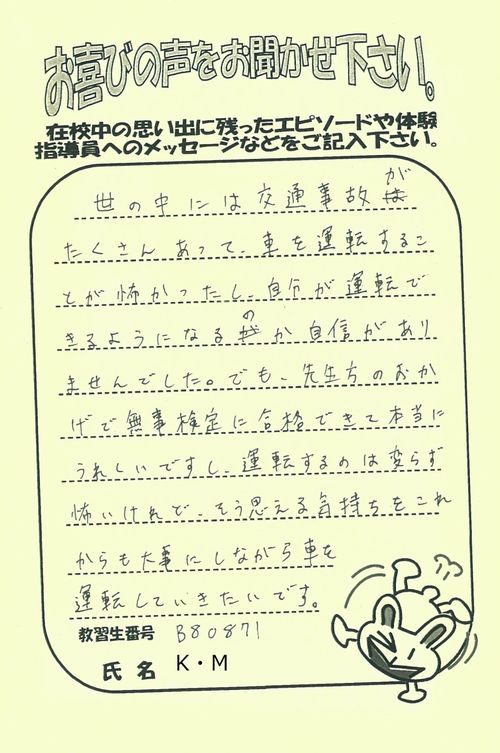 お喜びの声をお聞かせ下さい。
在校中の思い出に残ったエピソードや体験
指導員へのメッセージなどをご記入下さい。
世の中には交通事故が
たくさんあって、車を運転するこ
とが怖かったし、自分が運転で
きるようになるのか自信があり
ませんでした。でも、先生方のおか
げで無事検定に合格できて本当に
うれしいですし、運転するのは変らず
怖いけれど、そう思える気持ちをこれ
からも大事にしながら車を
運転していきたいです。
教習生番号 B80871
氏名 K・M